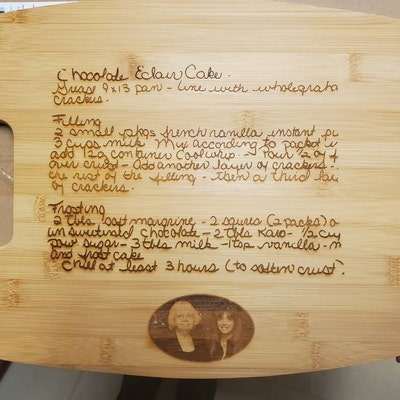 Chocolate Eclair Cake.
Grease 9x13 pan - line with whole graha
crackers.
Filling
2 small pkgs french vanilla instant pu
3 cups milk Mix according to packet
add 12oz container Cool whip - Pour 1/2 of f
over crust - Add another layer of crackers.
the rest of the filling - then a third lay
of crackers.
Frosting
2 tbs soft margarine - 2 squres (2 packs) o
unsweetened chocolate - 2 tbs Karo - 1/2 cu
pow sugar - 3 tbs milk - 1 tsp vanilla - m
and frost cake
Chill at least 3 hours (to soften crust).